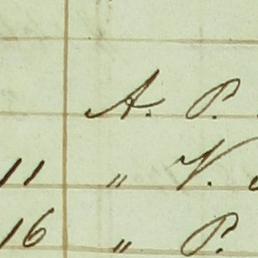 A. P.
11 " V.
16 " P.